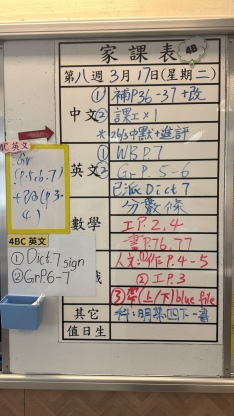 家課表
4B
第八週 3月17日(星期二)
中文
① 補P.36-37+改
② 課工×1
* 26/3中默+進評
英文
① WB P.7
② Gr P.5-6
已派 Dict 7
數學
分數條
工P.2,4
書P.76,77
人文:①作P.4-5
② 工P.3
③帶(上/下)blue file
其它
值日生
4C 英文
Gr
(P.5,6,7)
4BC 英文
① Dict.7 sign
② Gr P.6-7